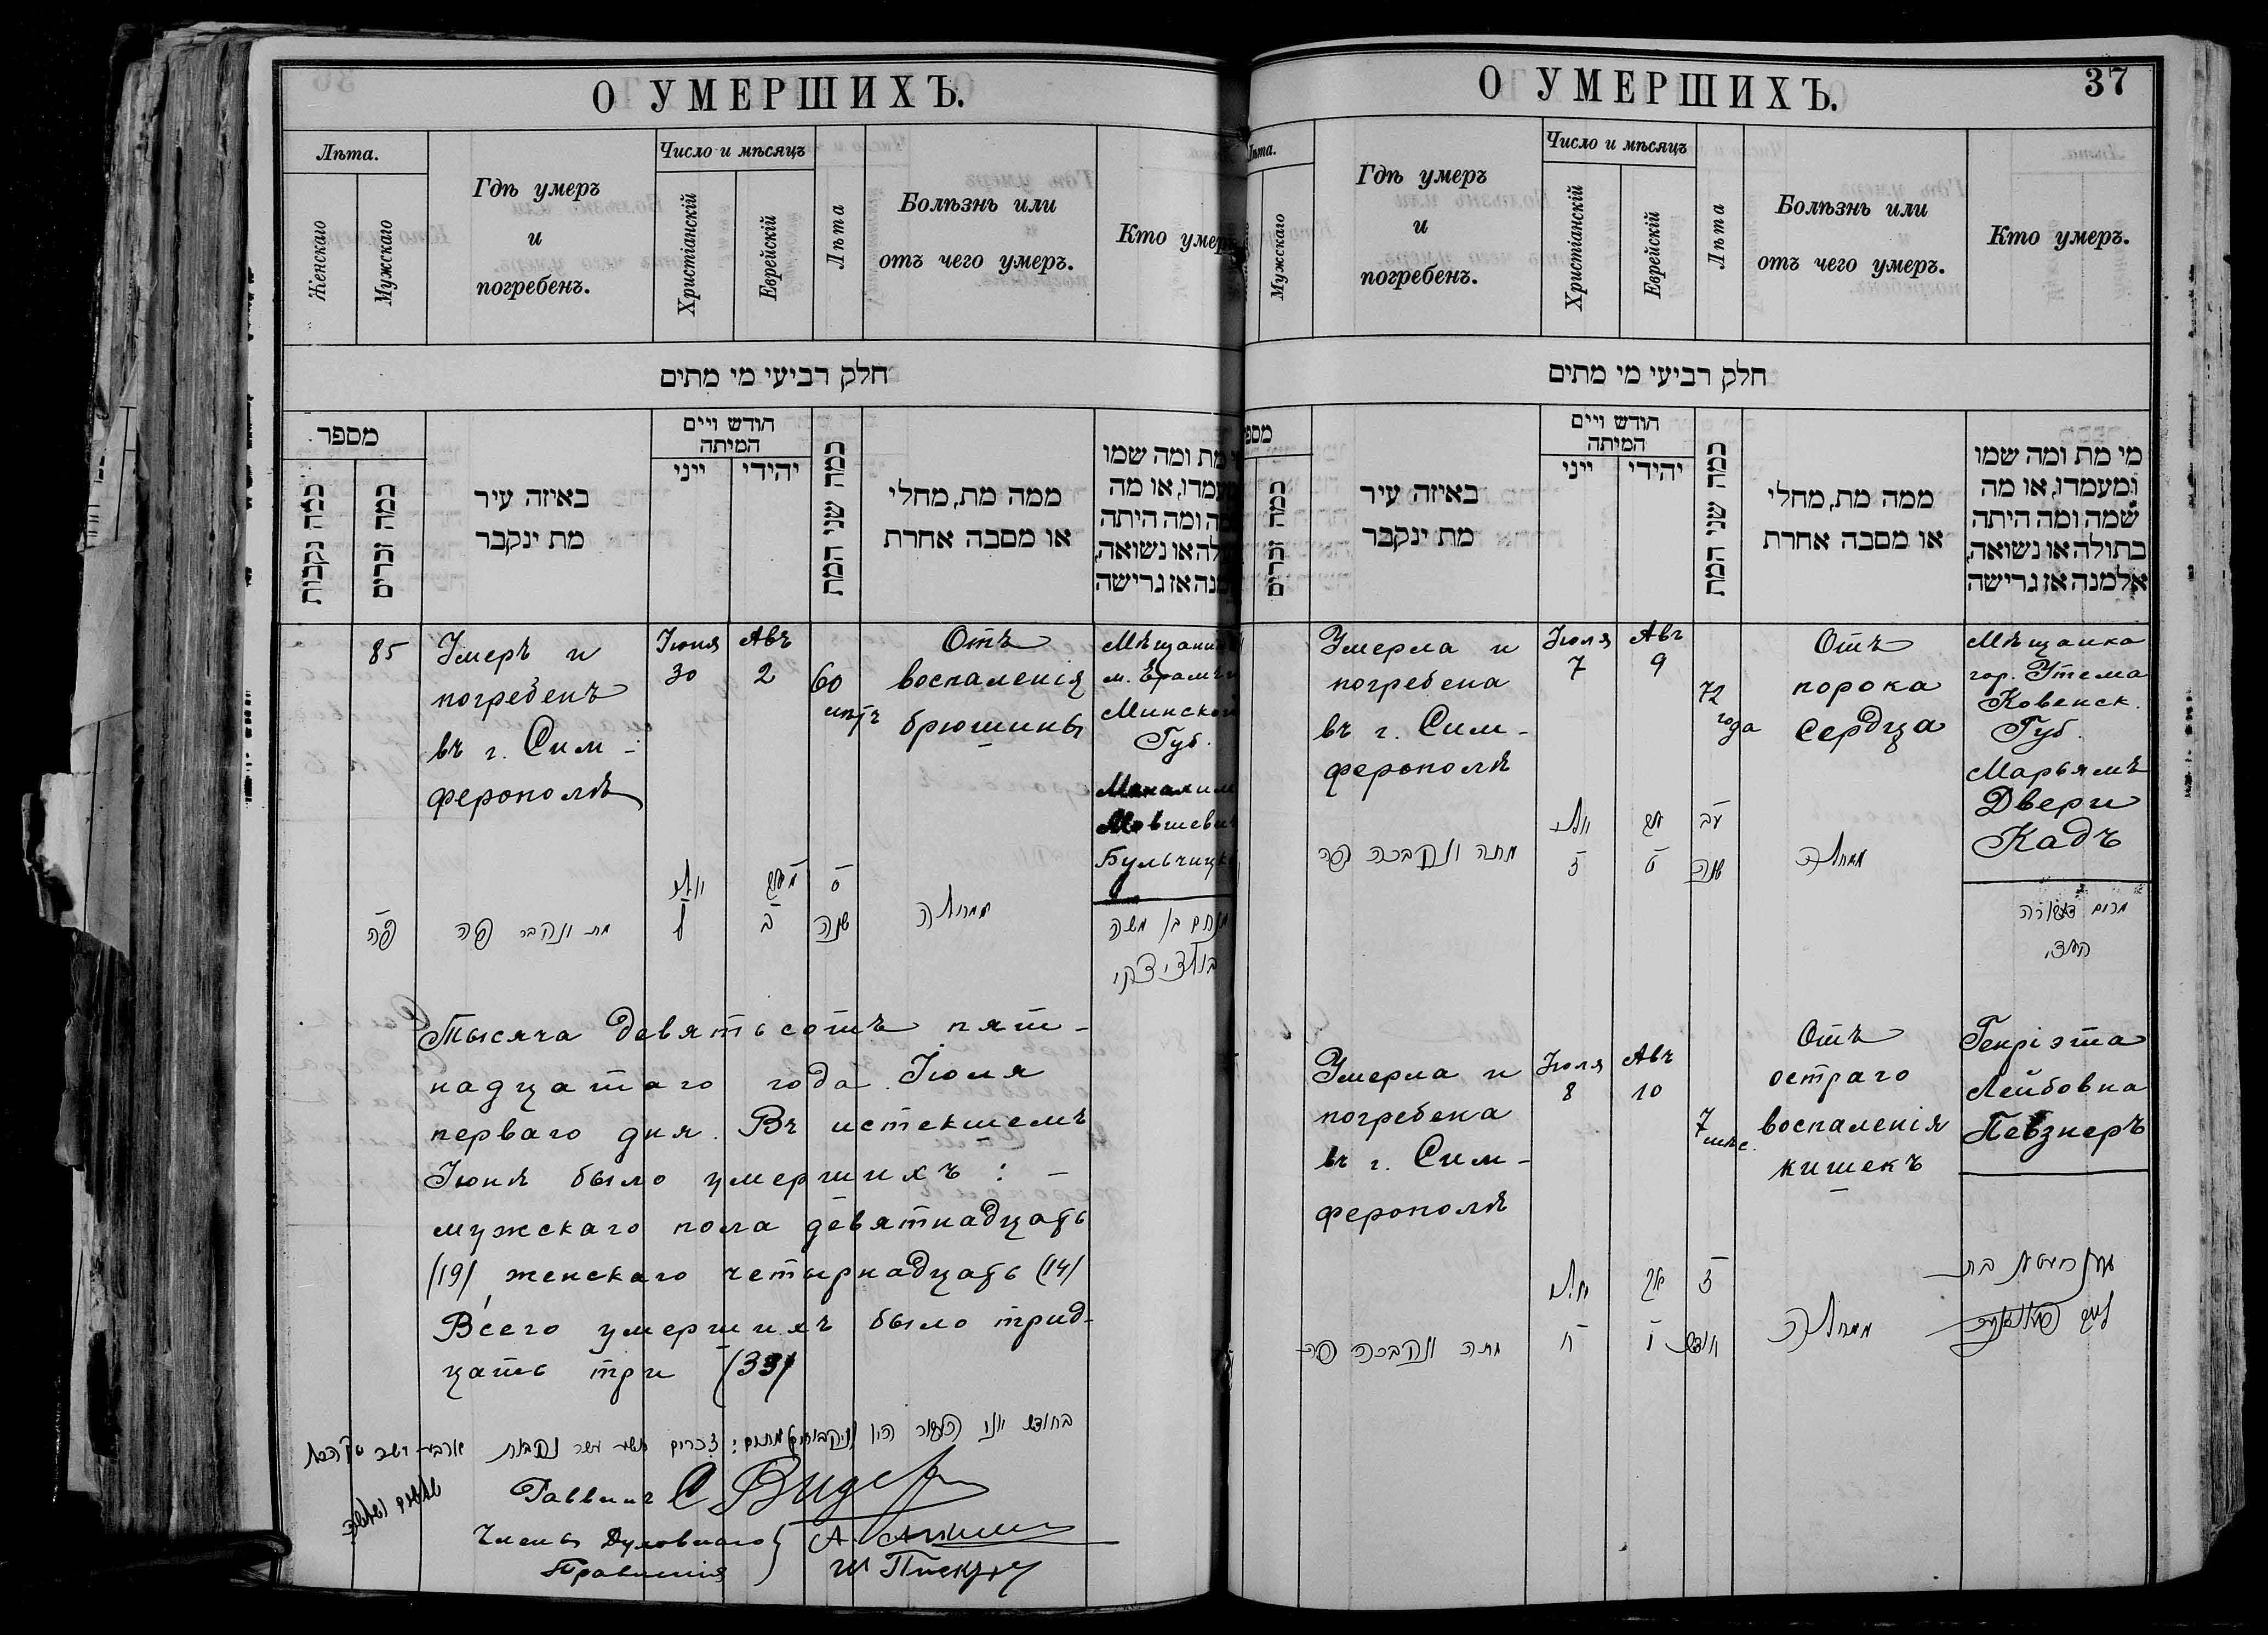 О УМЕРШИХЪ.
Лѣта.
Женскаго
Мужскаго
Гдѣ умеръ
и
погребенъ.
Число и мѣсяцъ
Христіанскій
Еврейскій
Лѣта
Болѣзнь или
отъ чего умеръ.
Кто умеръ
חלק רביעי מי מתים
מספר
כמה נקבות
כמה זכרים
באיזה עיר
מת ינקבר
חודש ויים
המיתה
ייני
יהידי
כמה שני המת
ממה מת, מחלי
או מסבה אחרת
מת ומה שמו
ומה היתה
או נשואה,
אז גרישה
85
Умеръ и
погребенъ
въ г. Сим-
ферополѣ
Іюня
30
Авъ
2
60
лѣтъ
Отъ
воспаленія
брюшины
Мѣщанин
Минской
Губ.
פה
מת ונקבר פה
יוני
ל
ב
ס
שנה
ממחלה
מנחם בן משה
Тысяча девятьсотъ пят-
надцатаго года Іюля
перваго дня. Въ истекшемъ
Іюнѣ было умершихъ: -
мужскаго пола девятнадцать
(19), женскаго четырнадцать (14)
Всего умершихъ было трид-
цать три (33)
Раввинъ С Видер
Члены Духовнаго
Правленія
О УМЕРШИХЪ.
37
Лѣта.
Мужскаго
Гдѣ умеръ
и
погребенъ.
Число и мѣсяцъ
Христіанскій
Еврейскій
Лѣта
Болѣзнь или
отъ чего умеръ.
Кто умеръ.
חלק רביעי מי מתים
כמה זכרים
באיזה עיר
מת ינקבר
חודש ויים
המיתה
ייני
יהידי
כמה שני המת
ממה מת, מחלי
או מסבה אחרת
מי מת ומה שמו
ומעמדו, או מה
שמה ומה היתה
בתולה או נשואה,
אלמנה אז גרישה
Умерла и
погребена
въ г. Сим-
ферополѣ
Іюля
7
Авъ
9
72
года
Отъ
порока
сердца
Мѣщанка
гор. Утема
Ковенск.
Губ.
Марьямъ
Двери
Кадъ
מתה ונקברה פה
יולי
ז
ט
עב
שנה
ממחלה
מרים דווירה
Умерла и
погребена
въ г. Сим-
ферополѣ
Іюля
8
Авъ
10
7
мѣс.
Отъ
остраго
воспаленія
кишекъ
Генріэта
Лейбовна
Певзнеръ
מתה ונקברה פה
יולי
ח
י
ז
ממחלה